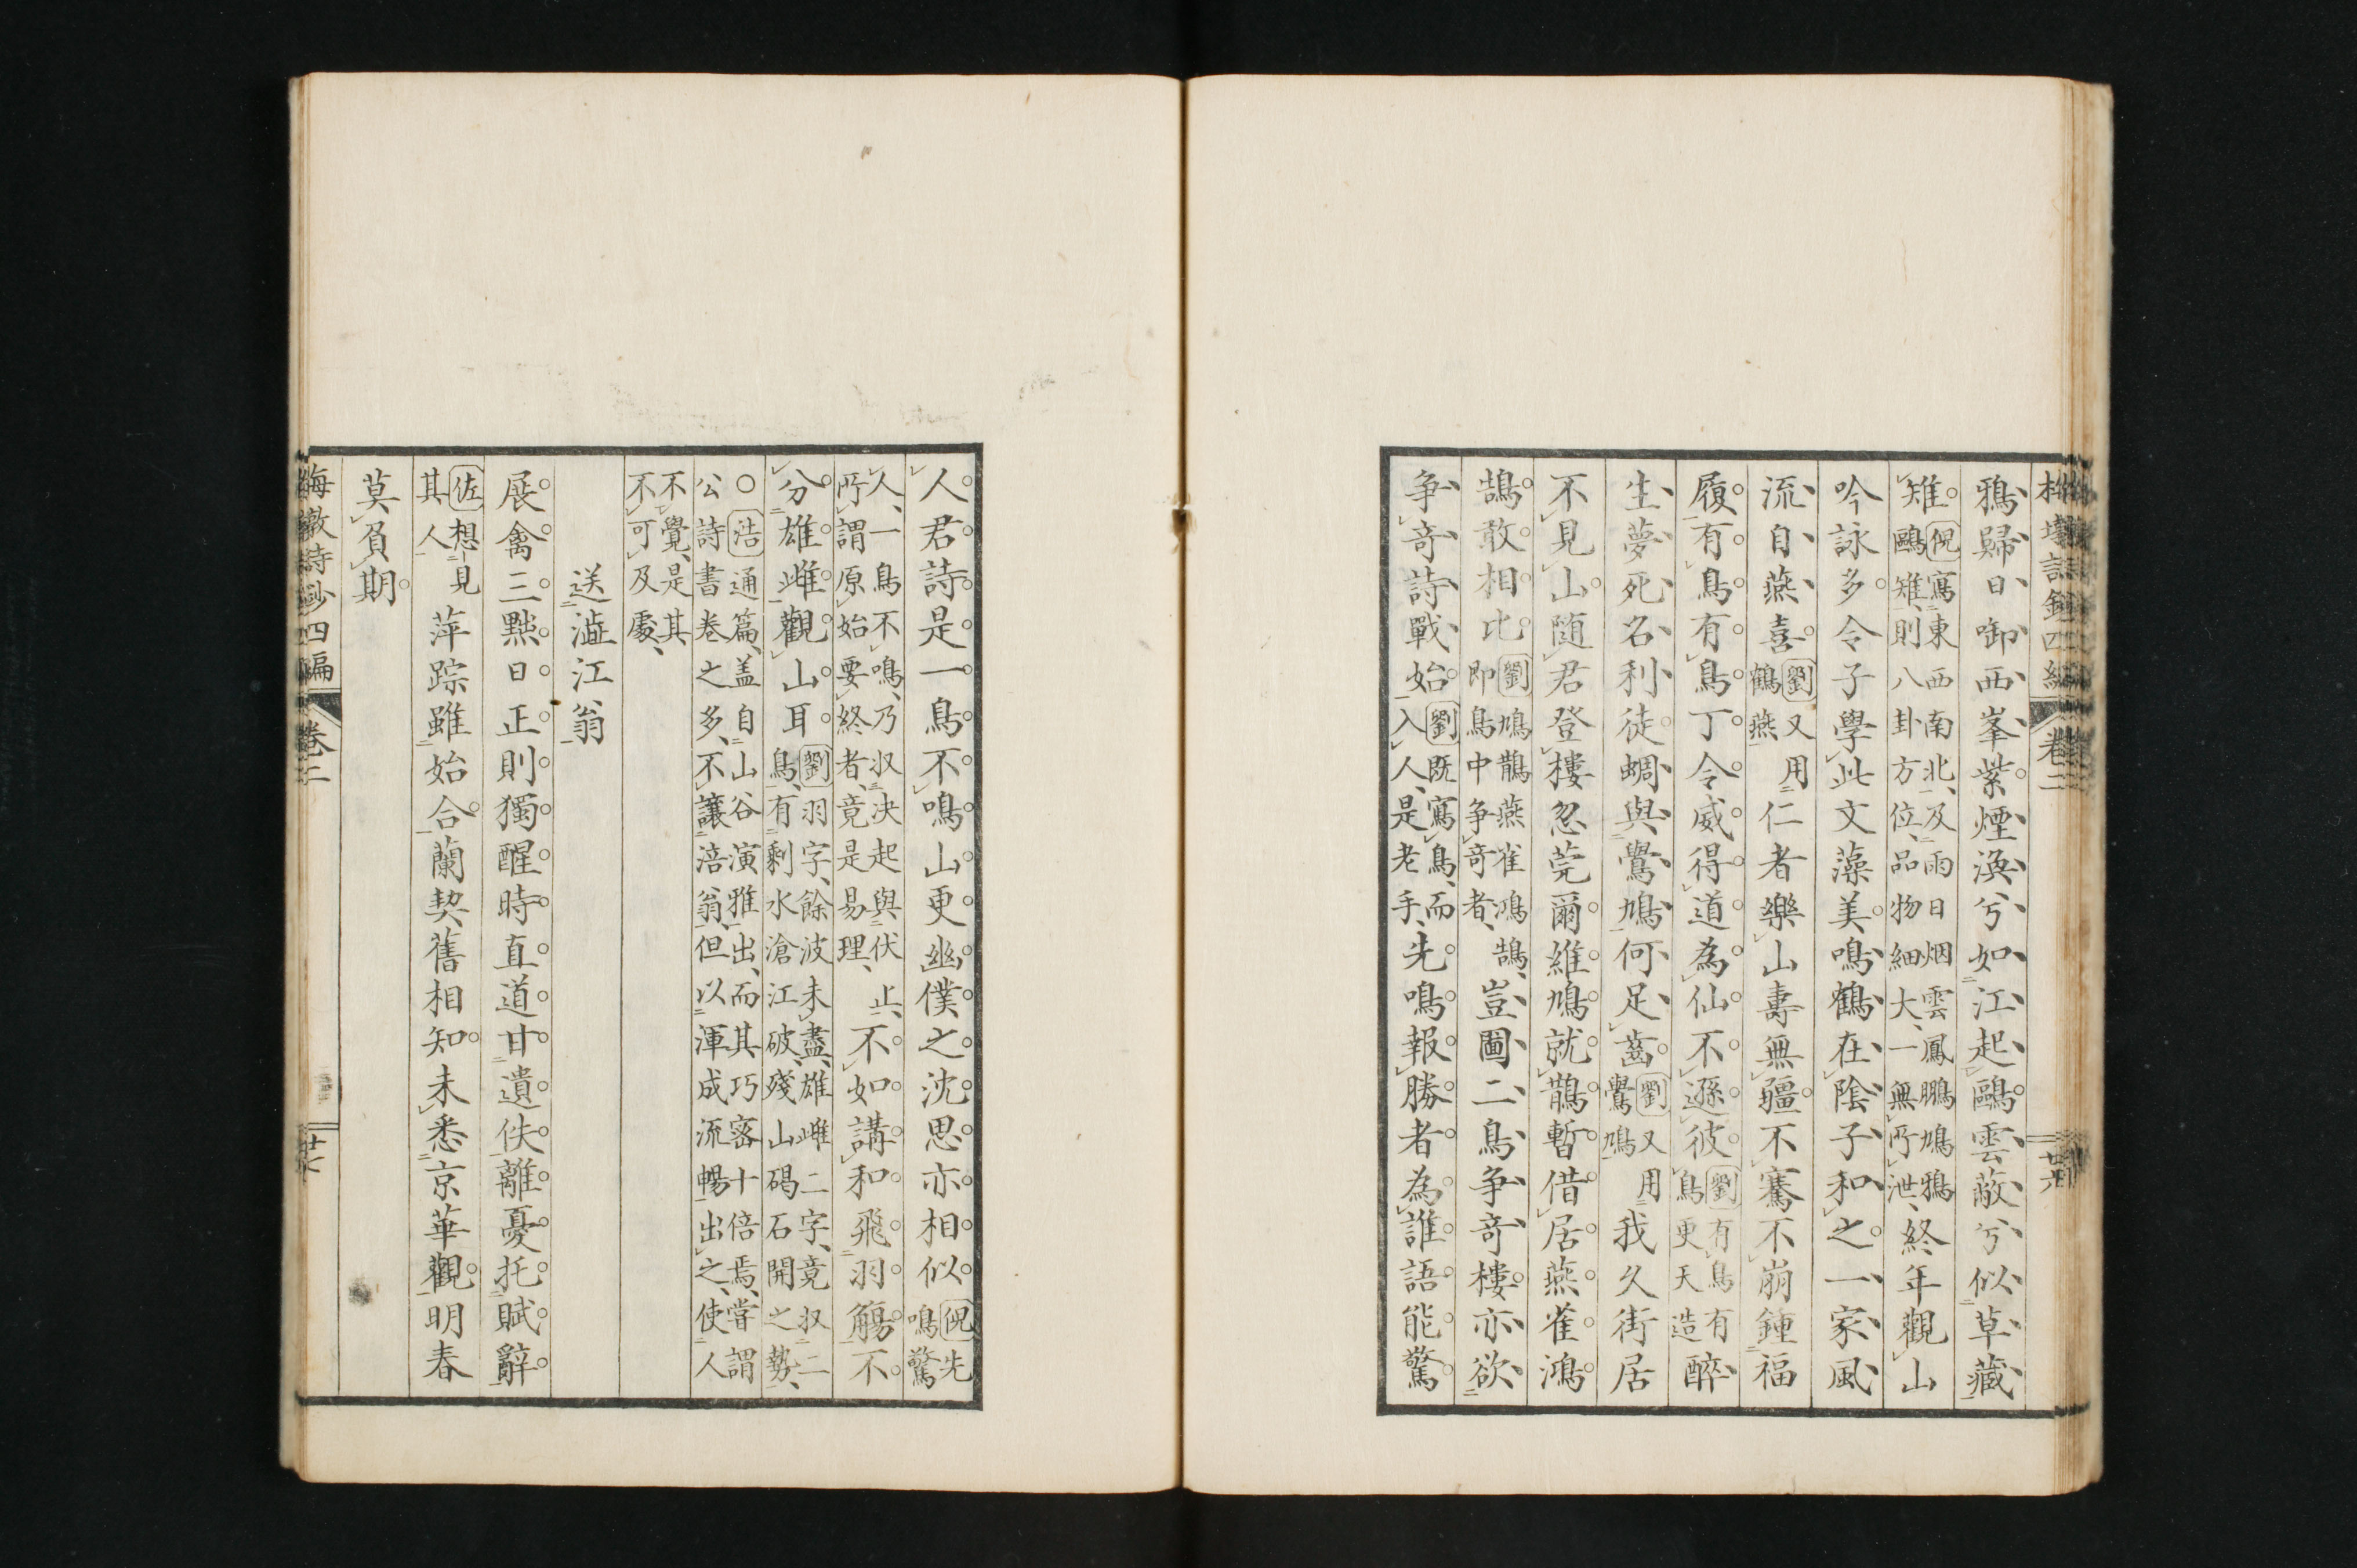 梅墩詩鈔四編 卷二 廿六
鴉歸日啣西峯紫煙渙兮如江起鷗雲蔽兮似草藏
雉倪寫東西南北及雨日烟雲鳳鵬鳩鴉鷗雉則八卦方位品物細大一無所泄終年觀山
吟詠多令子學此文藻美鳴鶴在陰子和之一家風
流自燕喜劉又用鶴燕仁者樂山壽無疆不騫不崩鍾福
履有鳥有鳥丁令威得道為仙不遜彼劉有鳥有鳥更天造醉
生夢死名利徒蜩與鷽鳩何足齒劉又用鷽鳩我久街居
不見山隨君登樓忽莞爾維鳩就鵲暫借居燕雀鴻
鵠敢相比劉鳩鵲燕雀鴻鵠即鳥中争奇者豈圖二鳥争奇樓亦欲
争奇詩戰始劉既寫鳥而入人是老手先鳴報勝者為誰語能驚
人君詩是一鳥不鳴山更幽僕之沈思亦相似倪先鳴驚
人一鳥不鳴乃収決起與伏止所謂原始要終者竟是易理不如講和飛羽觴不
分雄雌觀山耳劉羽字餘波未盡雄雌二字竟収二鳥有剩水滄江破殘山碣石開之勢
○浩通篇盖自山谷演雅出而其巧密十倍焉嘗謂公詩書卷之多不讓涪翁但以渾成流暢出之使人
不覺是其不可及處
送澁江翁
展禽三黜日正則獨醒時直道甘遺佚離憂托賦辭
佐想見其人萍踪雖始合蘭契舊相知未悉京華觀明春
莫負期
梅墩詩鈔四編 卷二 廿七